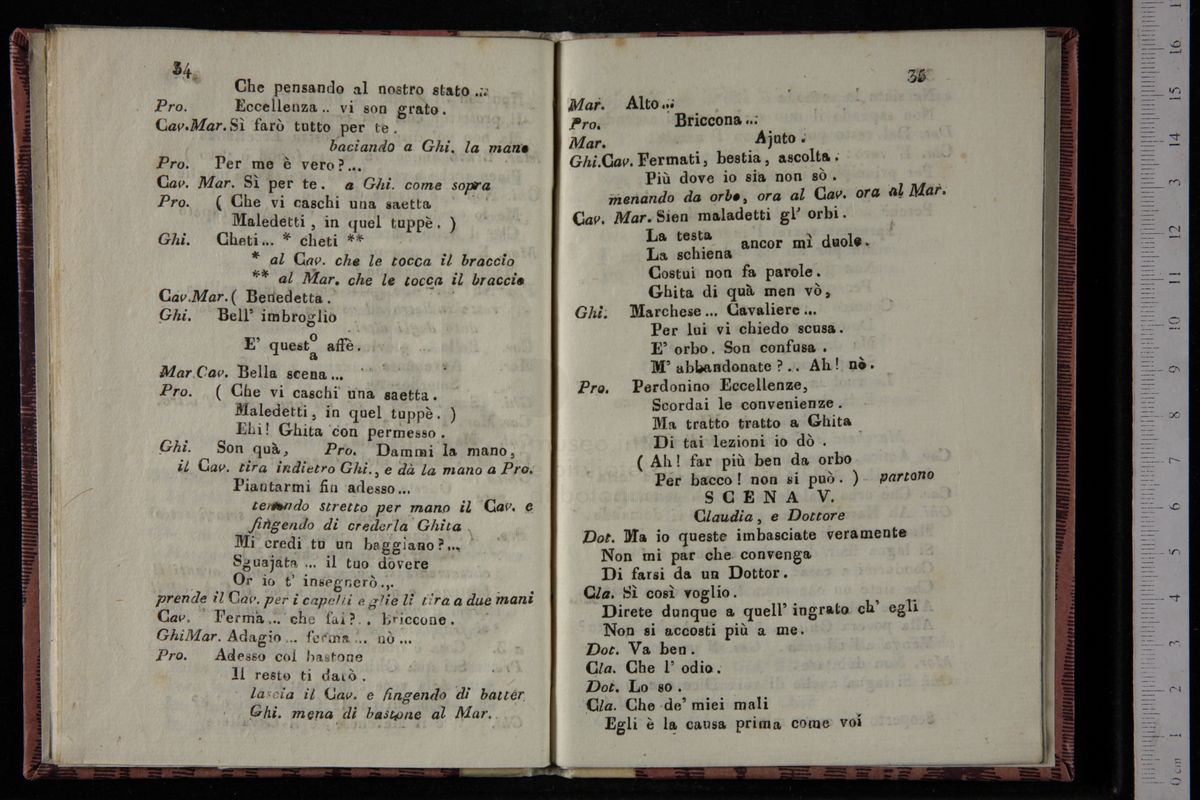 34
Che pensando al nostro stato ...
Pro. Eccellenza .. vi son grato.
Cav.Mar. Sì farò tutto per te.
baciando a Ghi. la mano
Pro. Per me è vero ?...
Cav. Mar. Sì per te. a Ghi. come sopra
Pro. ( Che vi caschi una saetta
Maledetti, in quel tuppè. )
Ghi. Cheti... * cheti **
* al Cav. che le tocca il braccio
** al Mar. che le tocca il braccio
Cav.Mar. ( Benedetta.
Ghi. Bell' imbroglio
E' quest o/a affè.
Mar.Cav. Bella scena ...
Pro. ( Che vi caschi una saetta.
Maledetti, in quel tuppè. )
Ehi! Ghita con permesso.
Ghi. Son quà, Pro. Dammi la mano,
il Cav. tira indietro Ghi., e dà la mano a Pro.
Piantarmi fin adesso...
tenendo stretto per mano il Cav. e
fingendo di crederla Ghita
Mi credi tu un baggiano ?...
Sguajata ... il tuo dovere
Or io t' insegnerò...
prende il Cav. per i capelli e glie li tira a due mani
Cav. Ferma... che fai?.. briccone.
GhiMar. Adagio ... ferma ... nò ...
Pro. Adesso col bastone
Il resto ti darò.
lascia il Cav. e fingendo di batter
Ghi. mena di bastone al Mar.
35
Mar. Alto...
Pro. Briccona...
Mar. Ajuto.
Ghi.Cav. Fermati, bestia, ascolta.
Più dove io sia non sò.
menando da orbo, ora al Cav. ora al Mar.
Cav. Mar. Sien maladetti gl' orbi.
La testa
La schiena ancor mì duole.
Costui non fa parole.
Ghita di quà men vò,
Ghi. Marchese ... Cavaliere ...
Per lui vi chiedo scusa.
E' orbo. Son confusa.
M' abbandonate ?.. Ah! nò.
Pro. Perdonino Eccellenze,
Scordai le convenienze.
Ma tratto tratto a Ghita
Di tai lezioni io dò.
( Ah! far più ben da orbo
Per bacco! non si può. ) partono
SCENA V.
Claudia, e Dottore
Dot. Ma io queste imbasciate veramente
Non mi par che convenga
Di farsi da un Dottor.
Cla. Sì così voglio.
Direte dunque a quell' ingrato ch' egli
Non si accosti più a me.
Dot. Va ben.
Cla. Che l' odio.
Dot. Lo so.
Cla. Che de' miei mali
Egli è la causa prima come voi
0 cm 1 2 3 4 5 6 7 8 9 10 11 12 13 14 15 16